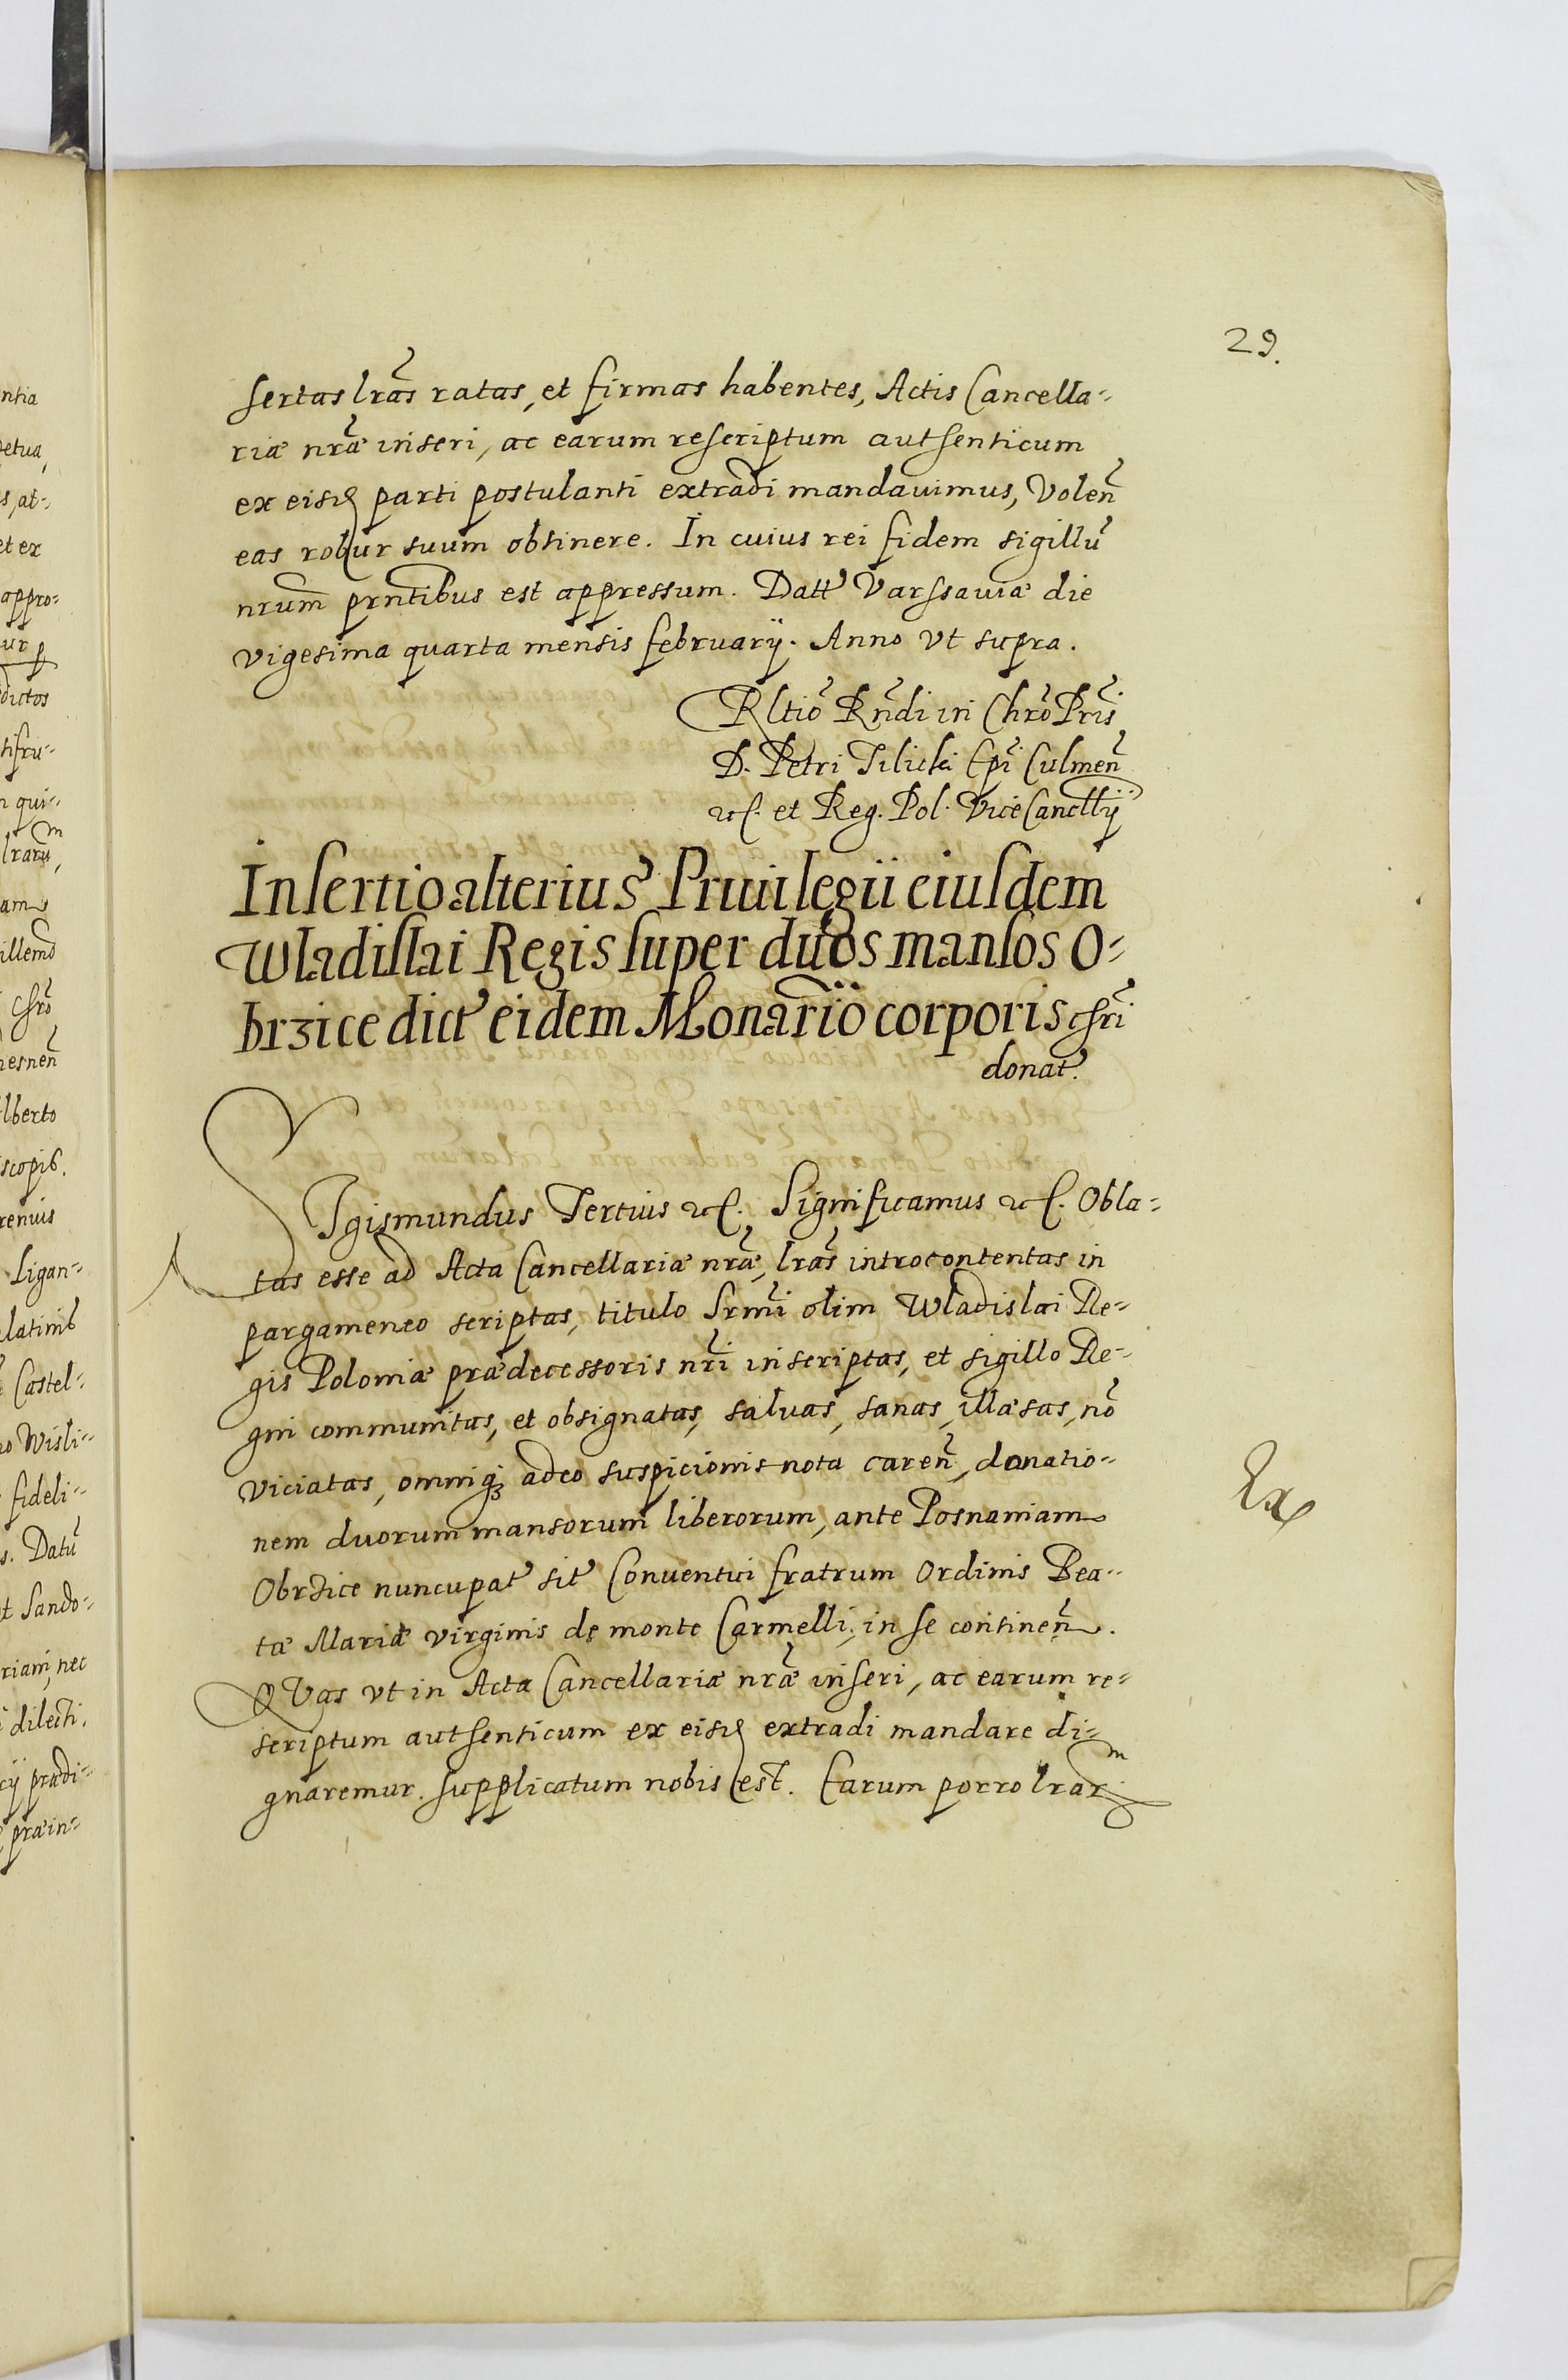 29.
sertas lras ratas, et firmas habentes, Actis Cancella-
riæ nræ inseri, ac earum rescriptum authenticum
ex eisd parti postulanti extradi mandavimus, Volen
eas robur suum obtinere. In cuius rei fidem sigillu
nrum prntibus est appressum. Datt Varssaviæ die
vigesima quarta mensis february. Anno vt supra.
Rltio Rndi in Chro Pris
D. Petri Tilicki Epi Culmen
etc. et Reg. Pol. ViceCancllij
Insertio alterius Privilegii eiusdem
Wladislai Regis super duos mansos O-
brzice dict eidem Monario corporis chri
donat.
SIgismundus Tertius etc. Significamus etc. Obla-
tas esse ad Acta Cancellariæ nræ, lras introcontentas in
pargameneo scriptas, titulo Srmi olim Wladislai Re-
gis Poloniæ prædecessoris nri inscriptas, et sigillo Re-
gni communitas, et obsignatas, salvas, sanas, illæsas, no
viciatas, omniq3 adeo suspicionis nota caren, donatio-
nem duorum mansorum liberorum, ante Posnaniam
Obrzice nuncupat sit Conventui fratrum Ordinis Bea-
tæ Mariæ virginis de monte Carmelli, in se continen.
QVas vt in Acta Cancellariæ nræ inseri, ac earum re-
scriptum authenticum ex eisd extradi mandare di-
gnaremur. supplicatum nobis est. Earum porro lrarum
Ex
ntia
petua,
s, at-
et ex
appro-
ur p
dictos
n qui-
lrarum,
am
illemo
Chro
nesnen
lberto
iscopis.
renuis
Ligan-
latinis
Castel-
no Wisli-
fideli-
s. Datu
t Sando-
riam, nec
dilecti,
cij prædi-
præin-